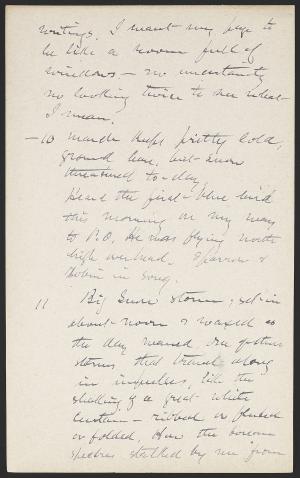 writings. I want my page to
be like a room full of
windows – no uncertainty
no looking twice to see what
I mean.
– 10 March keeps pretty cold,
ground bare, but snow
threatened to-day.
Heard the first blue bird
this morning on my way
to P.O. He was flying north
high overhead. Sparrow &
Robin in song.
11 Big Snow storm; set in
about noon & waxed as
the day waned, One of those
storms that travel along
in impulses, like the
shaking of a great white
curtain – ribbed or fluted
or folded, How the
spectres stalked by me from